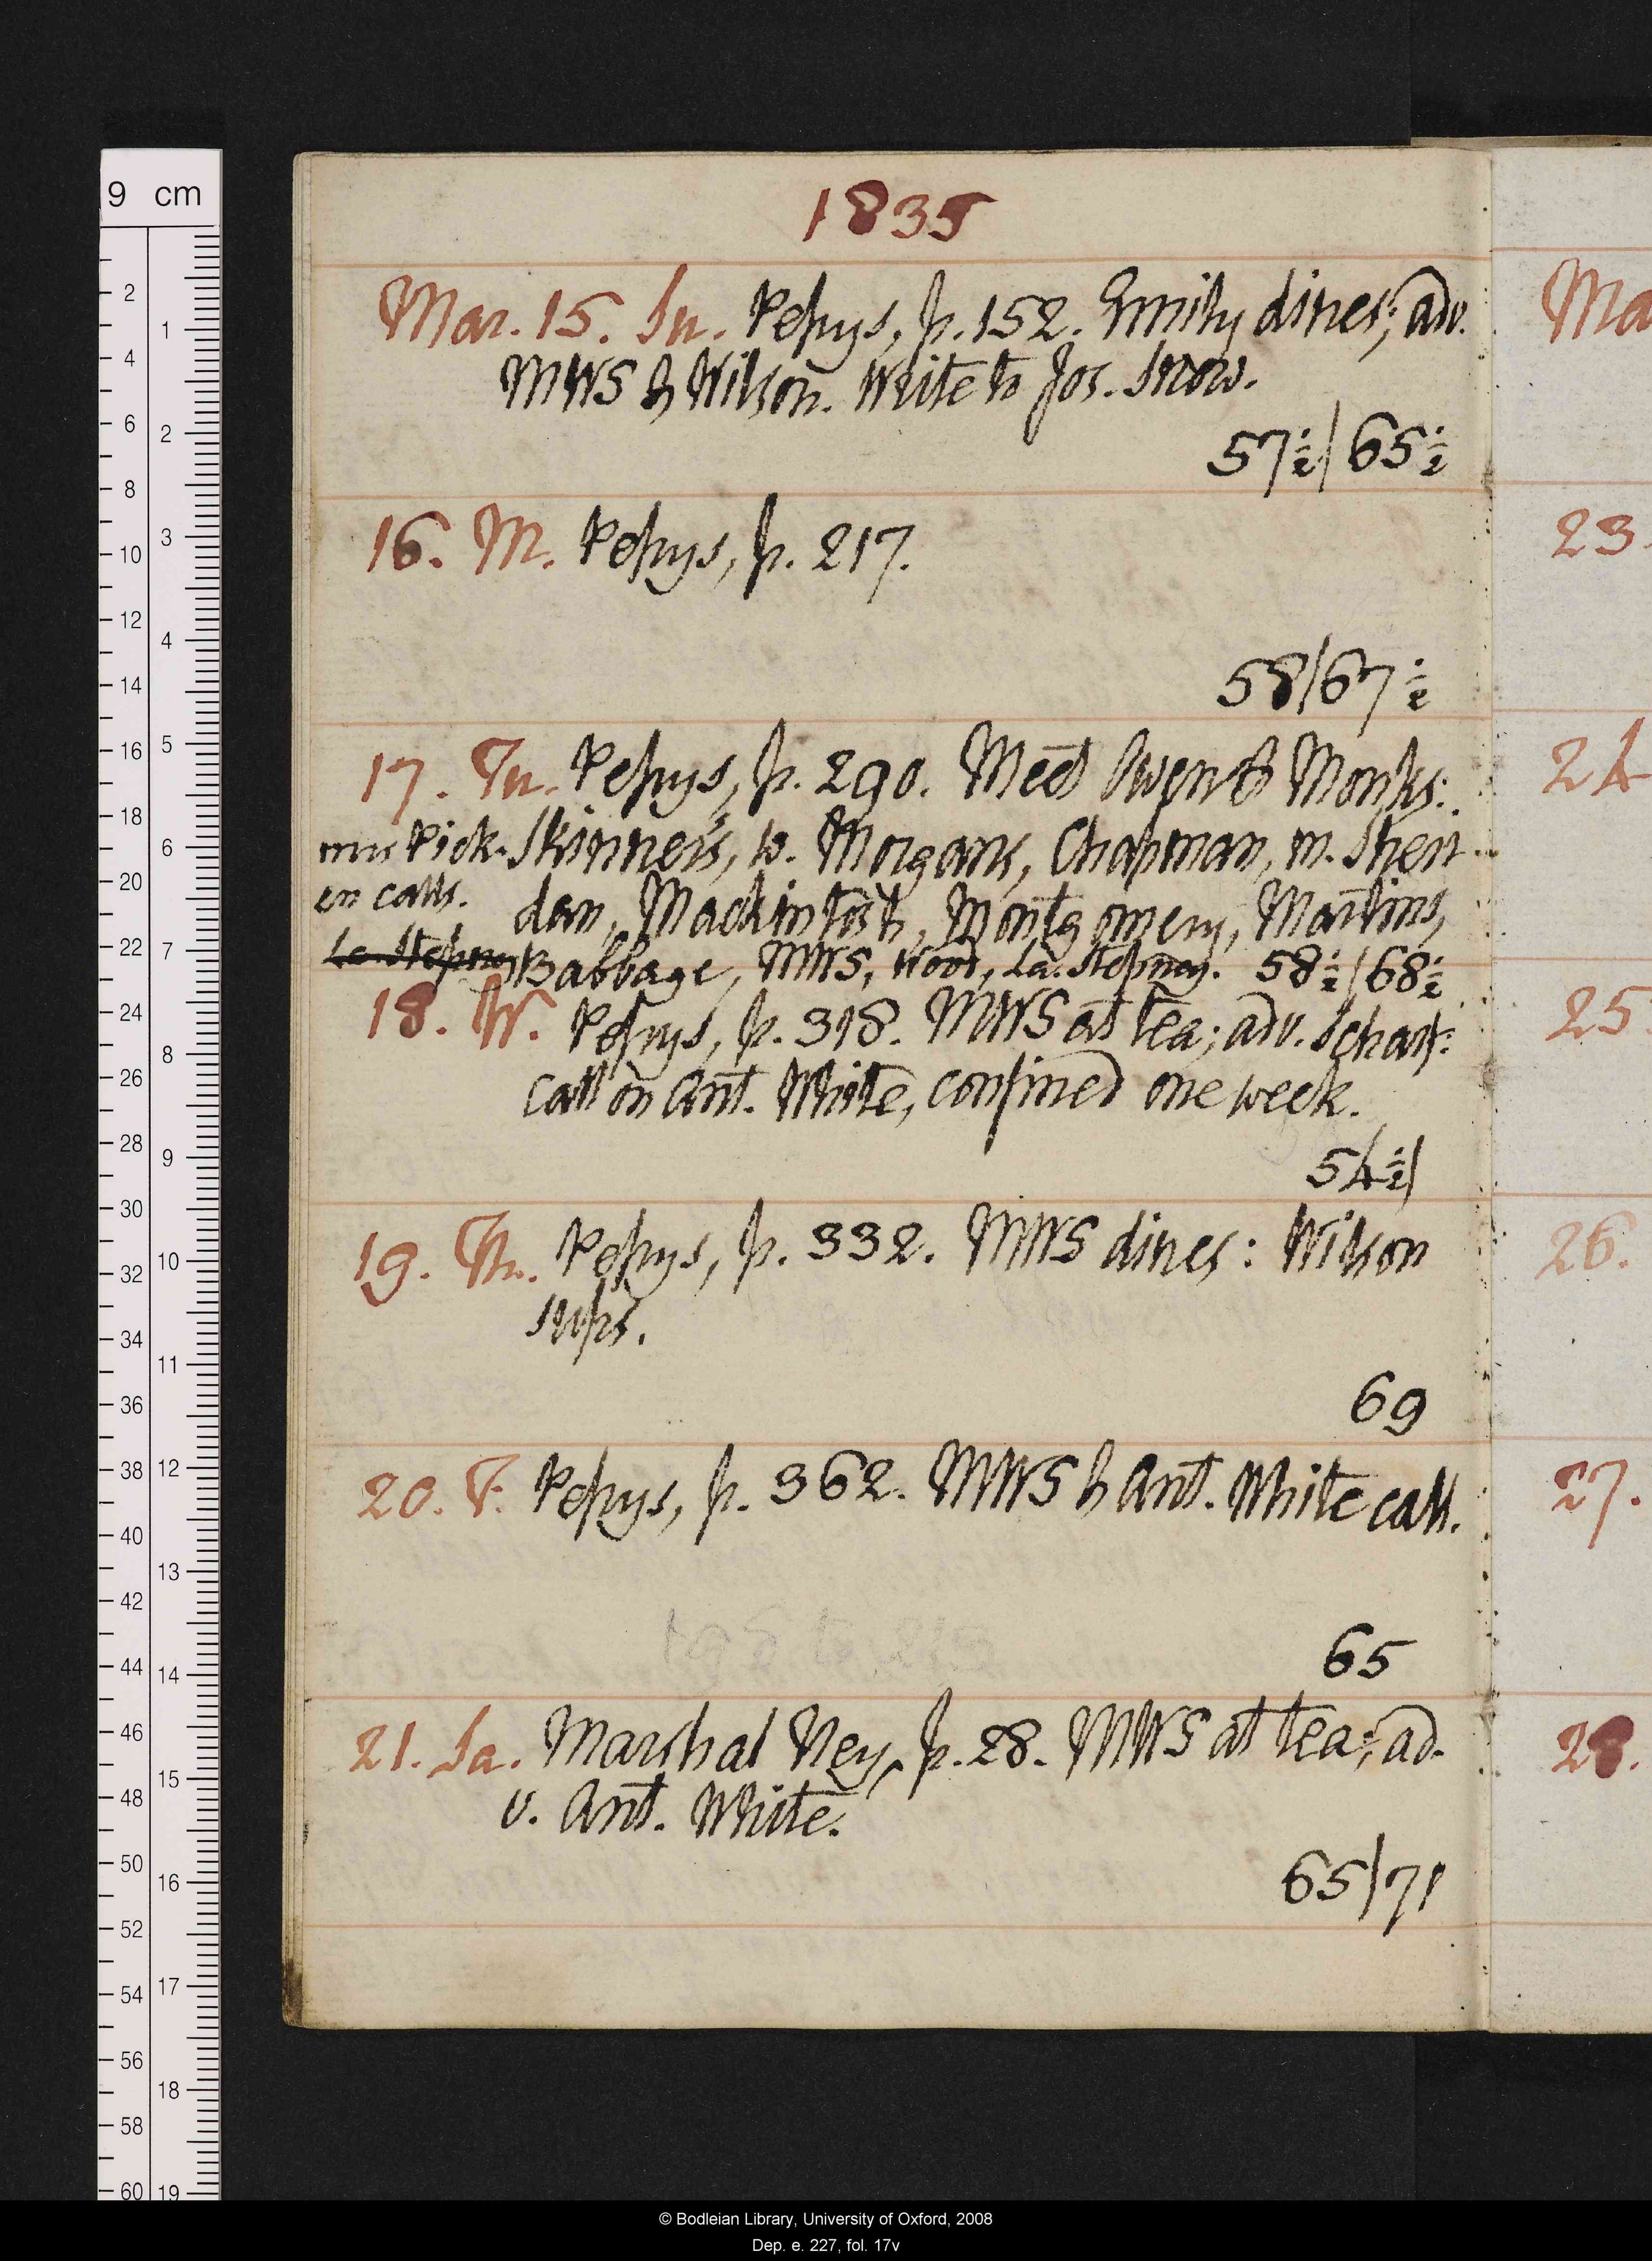 1835
Mar. 15. Su. Pepys, p. 152. Emily dines; adv.
MWS & Wilson. Write to Jos. Snow.
57½/65½
16. M. Pepys, p. 217.
58/67½
17. Tu. Pepys, p. 290. Meet Owen & Monks:
mrs Pick- Skinner's, w. Morgans, Chapman, m. Sheri-
en calls. dan, Mackintosh, Montgomery, Martins,
La. Stepney Babbage, MWS, Wood, La. Stepney. 58½/68½
18. W. Pepys, p. 318. MWS at tea; adv. Scharf:
call on Ant. White, confined one week.
54½/
19. Th. Pepys, p. 332. MWS dines: Wilson
sups.
69
20. F. Pepys, p. 362. MWS & Ant. White call.
65
21. Sa. Marshal Ney, p. 28. MWS at tea; ad-
v. Ant. White.
65/71
Ma
23.
24
25
26.
27.
28.
9 cm
2
4
6
8
10
12
14
16
18
20
22
24
26
28
30
32
34
36
38
40
42
44
46
48
50
52
54
56
58
60
1
2
3
4
5
6
7
8
9
10
11
12
13
14
15
16
17
18
19
© Bodleian Library, University of Oxford, 2008
Dep. e. 227, fol. 17v